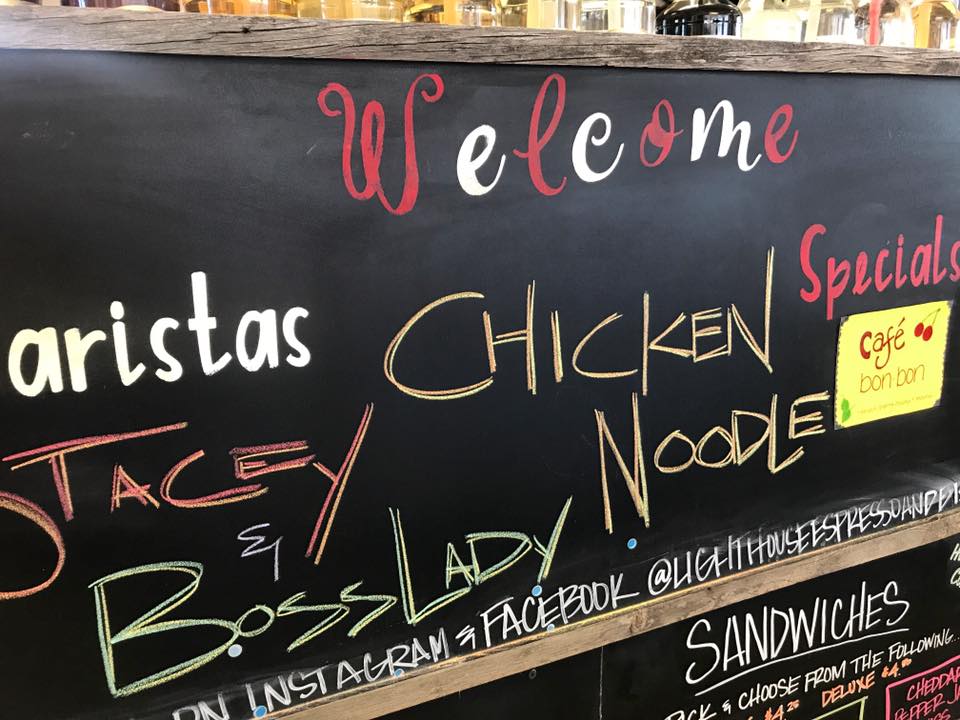 Welcome
Specials
aristas
CHICKEN
NOODLE
café
bon bon
STACEY
&
BOSSLADY
ON INSTAGRAM & FACEBOOK @LIGHTHOUSEESPRESSOANDDE
SANDWICHES
PICK & CHOOSE FROM THE FOLLOWING...
$4.25 DELUXE
CHEDDAR
PEPPER JA